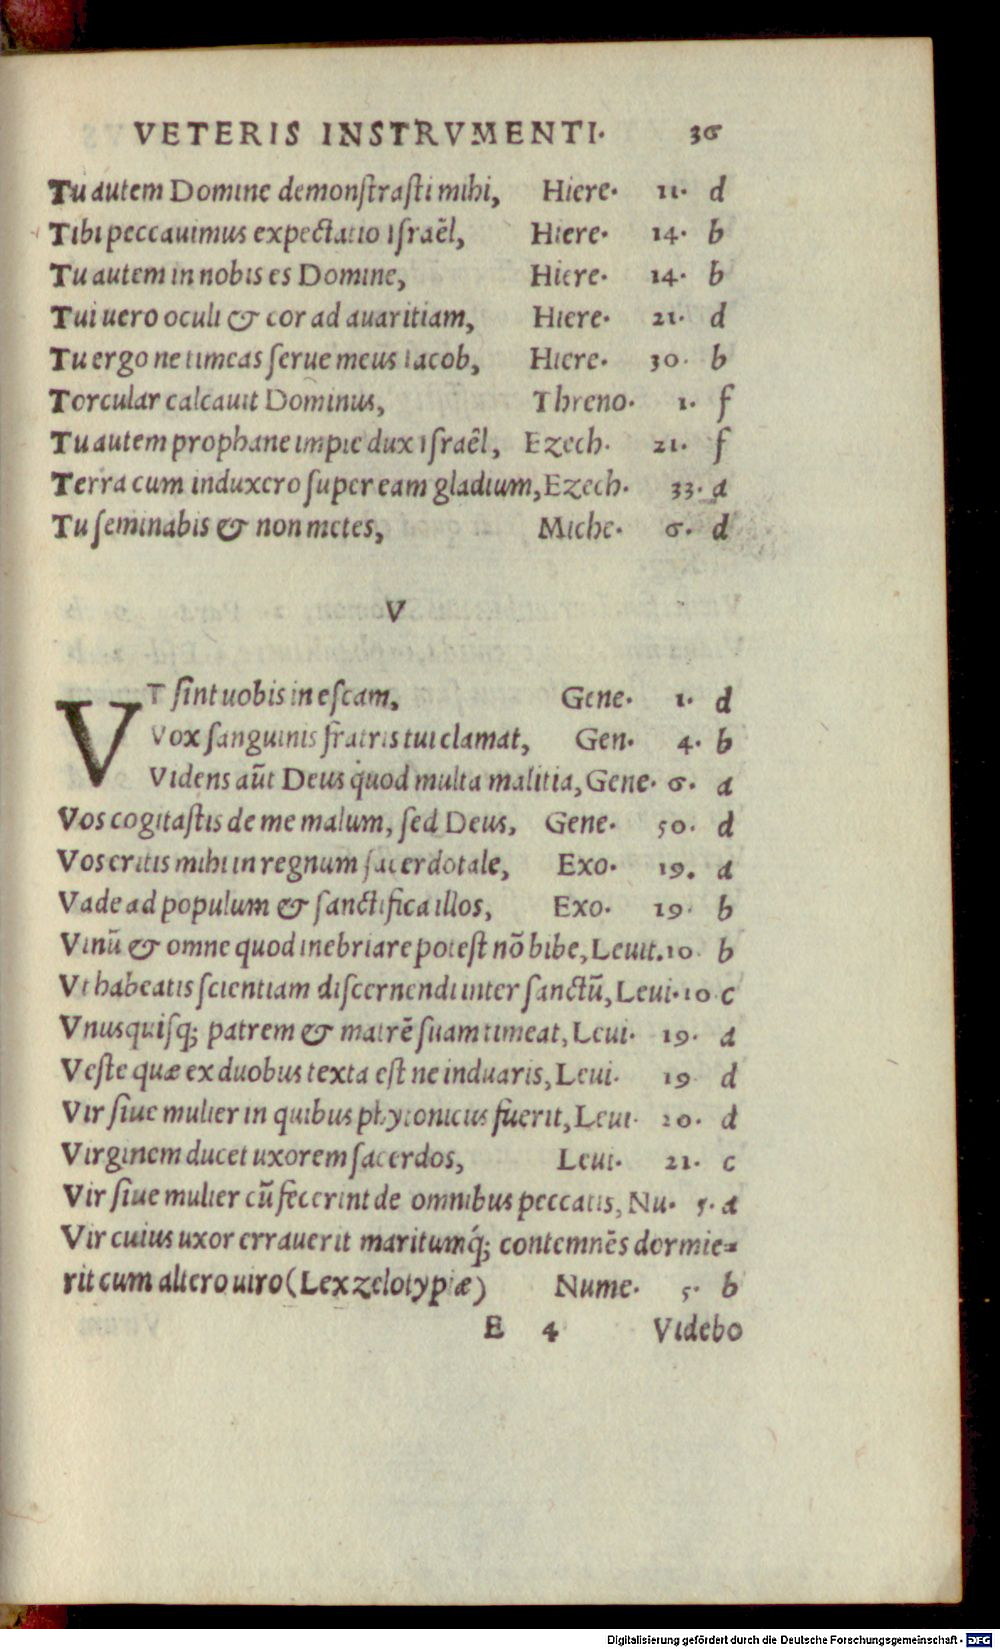 VETERIS INSTRVMENTI. 36
Tu autem Domine demonſtraſti mihi, Hiere. 11. d
Tibi peccauimus expectatio Iſraēl, Hiere. 14. b
Tu autem in nobis es Domine, Hiere. 14. b
Tui uero oculi & cor ad auaritiam, Hiere. 21. d
Tu ergo ne timeas ſerue meus Iacob, Hiere. 30. b
Torcular calcauit Dominus, Threno. 1. f
Tu autem prophane impie dux Iſraêl, Ezech. 21. f
Terra cum induxero ſuper eam gladium, Ezech. 33. a
Tu ſeminabis & non metes, Miche. 6. d
V
VT ſint uobis in eſcam, Gene. 1. d
Vox ſanguinis fratris tui clamat, Gen. 4. b
Videns aūt Deus quod multa malitia, Gene. 6. a
Vos cogitaſtis de me malum, ſed Deus, Gene. 50. d
Vos eritis mihi in regnum ſacerdotale, Exo. 19. a
Vade ad populum & ſanctifica illos, Exo. 19. b
Vinū & omne quod inebriare poteſt nō bibe, Leuit. 10. b
Vt habeatis ſcientiam diſcernendi inter ſanctū, Leui. 10 c
Vnusquiſq; patrem & matrē ſuam timeat, Leui. 19. a
Veſte quæ ex duobus texta eſt ne induaris, Leui. 19 d
Vir ſiue mulier in quibus phytonicus fuerit, Leui. 20. d
Virginem ducet uxorem ſacerdos, Leui. 21. c
Vir ſiue mulier cū fecerint de omnibus peccatis, Nu. 5. a
Vir cuius uxor errauerit maritumq́; contemnēs dormie=
rit cum altero uiro (Lex zelotypiæ) Nume. 5. b
E 4 Videbo
Digitalisierung gefördert durch die Deutsche Forschungsgemeinschaft - DFG